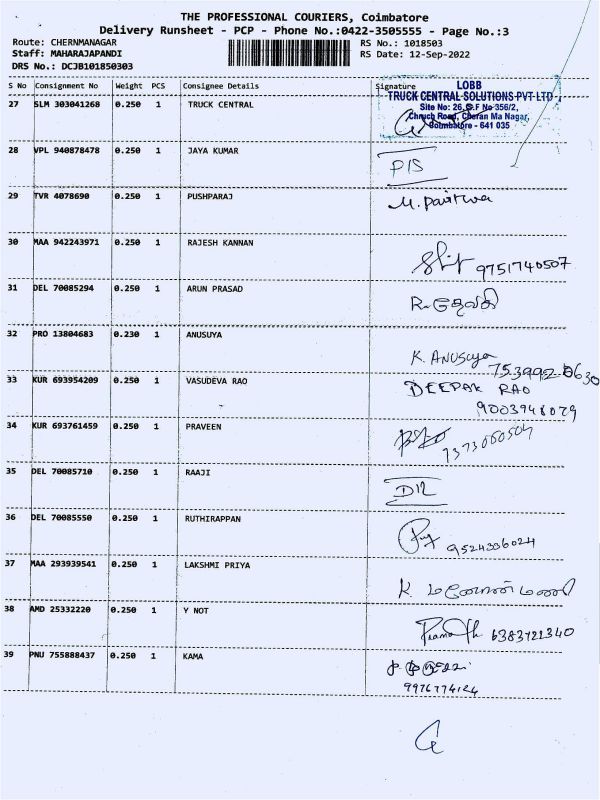 THE PROFESSIONAL COURIERS, Coimbatore
Delivery Runsheet - PCP - Phone No.:0422-3505555 - Page No.:3
Route: CHERNMANAGAR RS No.: 1018503
Staff: MAHARAJAPANDI RS Date: 12-Sep-2022
DRS No.: DCJB101850303
S No Consignment No Weight PCS Consignee Details Signature
LOBB
TRUCK CENTRAL SOLUTIONS PVT LTD
27 SLM 303041268 0.250 1 TRUCK CENTRAL
Site No: 26, S.F No 356/2,
Chruch Road, Cheran Ma Nagar,
Coimbatore - 641 035
28 VPL 940878478 0.250 1 JAYA KUMAR
29 TVR 4078690 0.250 1 PUSHPARAJ
30 MAA 942243971 0.250 1 RAJESH KANNAN
9751740507
31 DEL 70085294 0.250 1 ARUN PRASAD
32 PRO 13804683 0.230 1 ANUSUYA
K. ANUSUYA
33 KUR 693954209 0.250 1 VASUDEVA RAO DEEPAK RAO
34 KUR 693761459 0.250 1 PRAVEEN
35 DEL 70085710 0.250 1 RAAJI
36 DEL 70085550 0.250 1 RUTHIRAPPAN
9524336024
37 MAA 293939541 0.250 1 LAKSHMI PRIYA
38 AMD 25332220 0.250 1 Y NOT
39 PNU 755888437 0.250 1 KAMA
9976774124